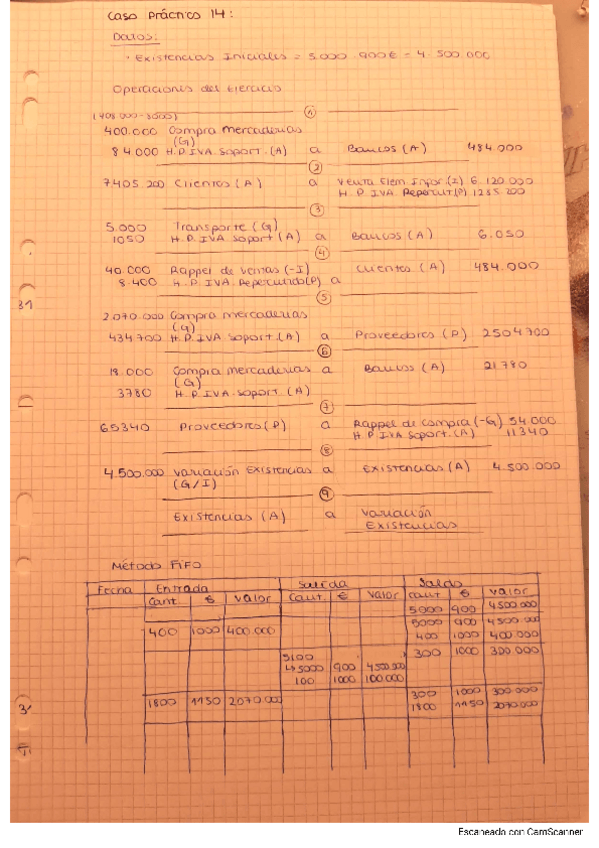 Caso Práctico 14:
Datos:
· Existencias Iniciales = 5.000 · 900€ = 4.500.000
Operaciones del Ejercicio
(408.000-8000) 1
400.000 Compra mercaderías (G)
84000 H.P. IVA Soport. (A) a Bancos (A) 484.000
2
7405.200 Clientes (A) a Venta Elem Infor. (I) 6.120.000
H.P. IVA Repercut (P) 1285.200
3
5.000 Transporte (G)
1050 H.P. IVA Soport (A) a Bancos (A) 6.050
4
40.000 Rappel de ventas (-I) Clientes (A) 484.000
8.400 H.P. IVA Repercutido (P) a
5
2.070.000 Compra mercaderías (G)
434700 H.P. IVA Soport (A) a Proveedores (P) 2504700
6
18.000 Compra mercaderías a Bancos (A) 21780
(G)
3780 H.P. IVA Soport. (A)
7
65340 Proveedores (P) a Rappel de compra (-G) 54.000
H.P. IVA Soport. (A) 11340
8
4.500.000 Variación Existencias a Existencias (A) 4.500.000
(G/I)
9
Existencias (A) a Variación
Existencias
31
Método FIFO
Fecha Entrada Salida Saldo
Cant € Valor Cant. € Valor Cant € Valor
5000 900 4500.000
5000 900 4500.000
400 1000 400.000 400 1000 400.000
5100 300 1000 300.000
↳5000 900 4500.000
100 1000 100.000
300 1000 300.000
1800 1150 2070.000 1800 1150 2070.000
Escaneado con CamScanner